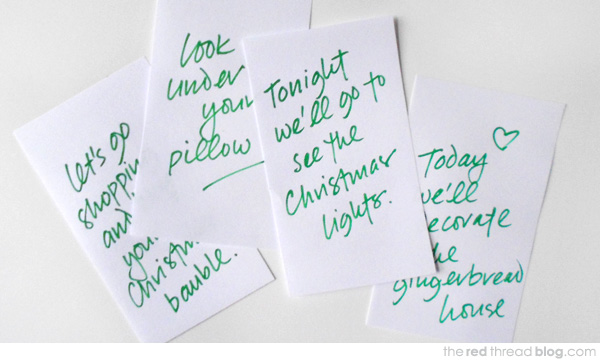 let's go
shoppin
and
you
Christm
bauble.
look
under
your
pillow
Tonight
we'll go to
see the
Christmas
lights.
Today
we'll
ecorate
he
gingerbread
house
the red thread blog.com